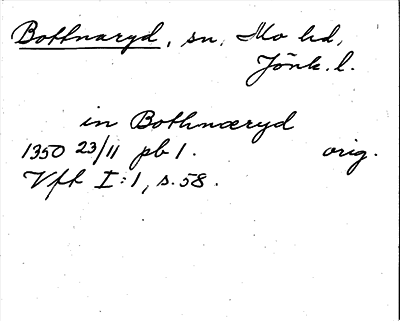 Bottnaryd, sn, Mo hd,
Jönk. l.
in Bothnæryd
1350 23/11 pb 1. orig.
Vft I:1, s. 58.